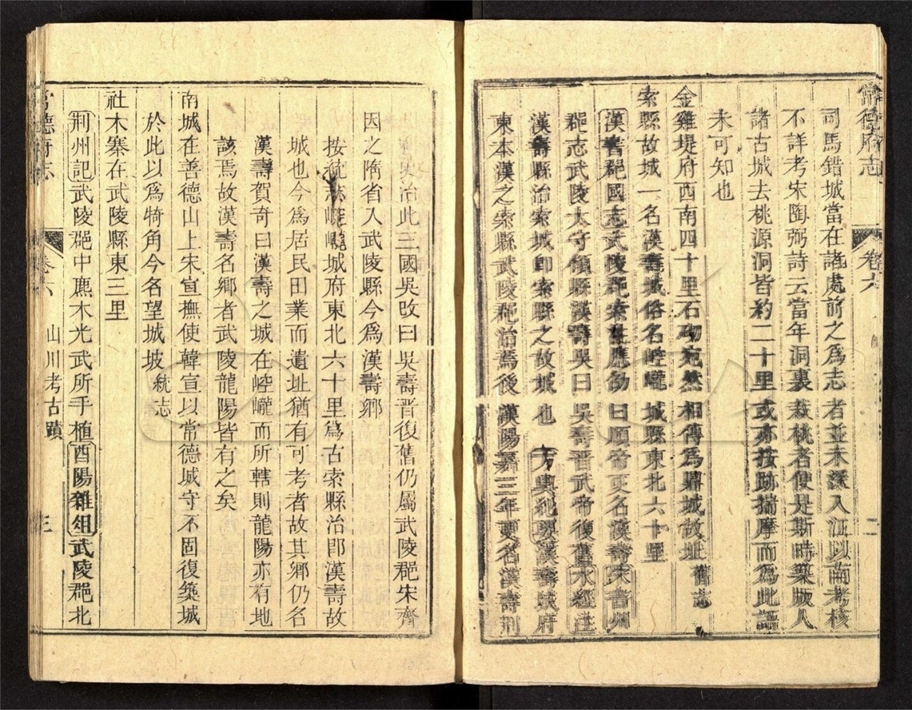 常德府志
卷六
二
司馬錯城當在諸處前之為志者並未深入沅以南考核
不詳考宋陶弼詩云當年洞裏栽桃者便是斯時築版人
諸古城去桃源洞皆約二十里或亦按跡揣摩而為此語
未可知也
金雞堤府西南四十里石砌宛然相傳為縣城故址舊志
索縣故城一名漢壽城俗名崆巄城縣東北六十里
漢書郡國志武陵郡索注應劭曰順帝更名漢壽
郡志武陵太守領縣漢壽吳曰吳壽晉武帝復舊水經注
漢壽縣治索城卽索縣之故城也方輿紀要漢壽城府
東本漢之索縣武陵郡治焉後漢陽嘉三年更名漢壽荆
州刺史治此三國吳改曰吳壽晉復舊仍屬武陵郡宋齊
因之隋省入武陵縣今為漢壽鄉
按統志崆巄城府東北六十里為古索縣治卽漢壽故
城也今為居民田業而遺址猶有可考者故其鄉仍名
漢壽賀奇曰漢壽之城在崆巄而所轄則龍陽亦有地
該焉故漢壽名鄉者武陵龍陽皆有之矣
南城在善德山上宋宣撫使韓宣以常德城守不固復築城
於此以為犄角今名望城坡統志
社木寨在武陵縣東三里
荆州記武陵郡中鹿木光武所手植酉陽雜俎武陵郡北
常德府志
卷六
山川考古蹟
三